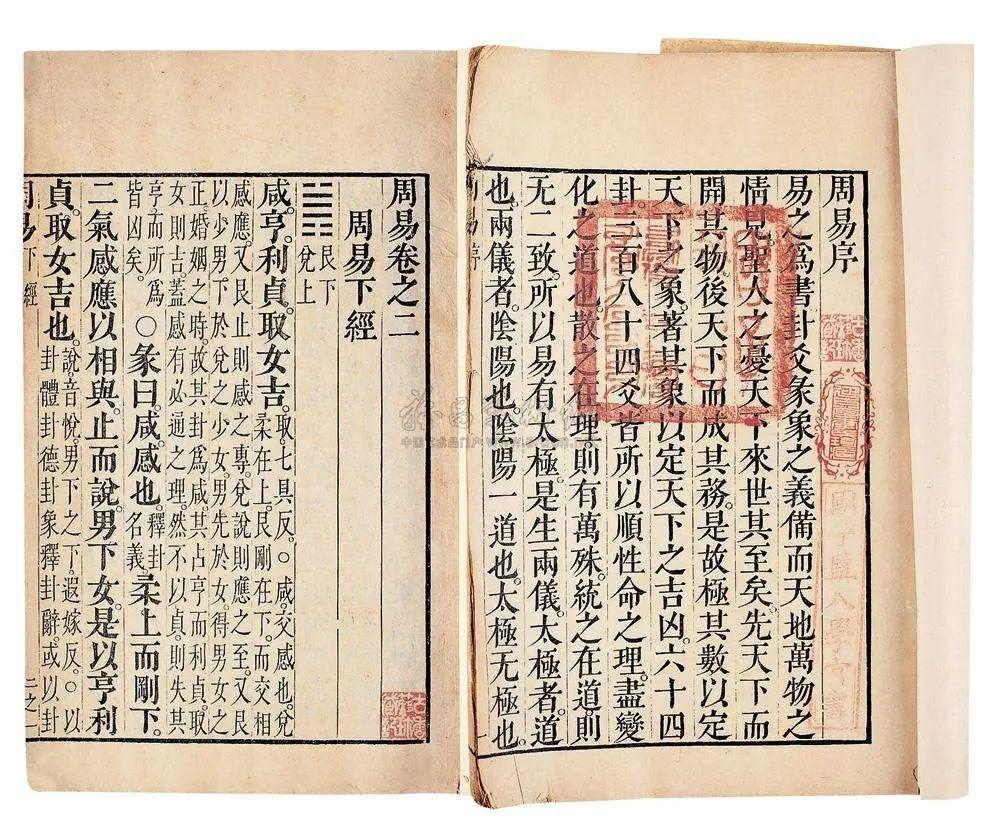 周易序
易之爲書卦爻彖象之義備而天地萬物之
情見。聖人之憂天下來世其至矣。先天下而
開其物。後天下而成其務。是故極其數以定
天下之象。著其象以定天下之吉凶。六十四
卦。三百八十四爻。皆所以順性命之理。盡變
化之道也。散之在理。則有萬殊。統之在道則
无二致。所以易有太極。是生兩儀。太極者道
也。兩儀者。陰陽也。陰陽一道也。太極无極也。
周易序
周易卷之二
周易下經
艮下
兌上
咸。亨。利貞。取女吉。取。七具反。○咸。交感也。兌
柔在上。艮剛在下。而交相
感應。又艮止則感之專。兌說則應之至。又艮
以少男下於兌之少女。男先於女。得男女之
正。婚姻之時。故其卦爲咸。其占亨而利貞。取
女則吉。蓋感有必通之理。然不以貞。則失其
亨。而所爲
皆凶矣。
○彖曰。咸。感也。釋卦
名義。
柔上而剛下。
二氣感應以相與。止而說。男下女。是以亨利
貞。取女吉也。說。音悅。男下之下。遐嫁反。○以
卦體卦德卦象釋卦辭。或以卦
周易下經